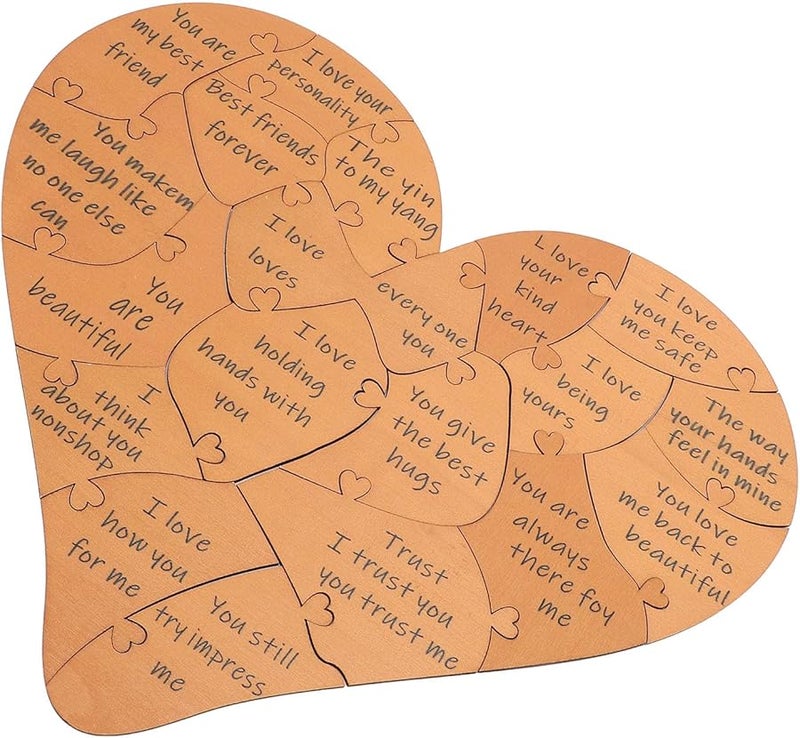 You are
my best
friend
I love your
personality
Best friends
forever
The yin
to my yang
You makem
me laugh like
no one else
can
I love
loves
You
are
beautiful
every one
you
L love
your
kind
heart
I love
you keep
me safe
I love
holding
hands with
you
I
think
about you
nonshop
You give
the best
hugs
I love
being
yours
The way
your hands
feel in mine
I love
how you
for me
Trust
I trust you
you trust me
You are
always
there foy
me
You love
me back to
beautiful
You still
try impress
me